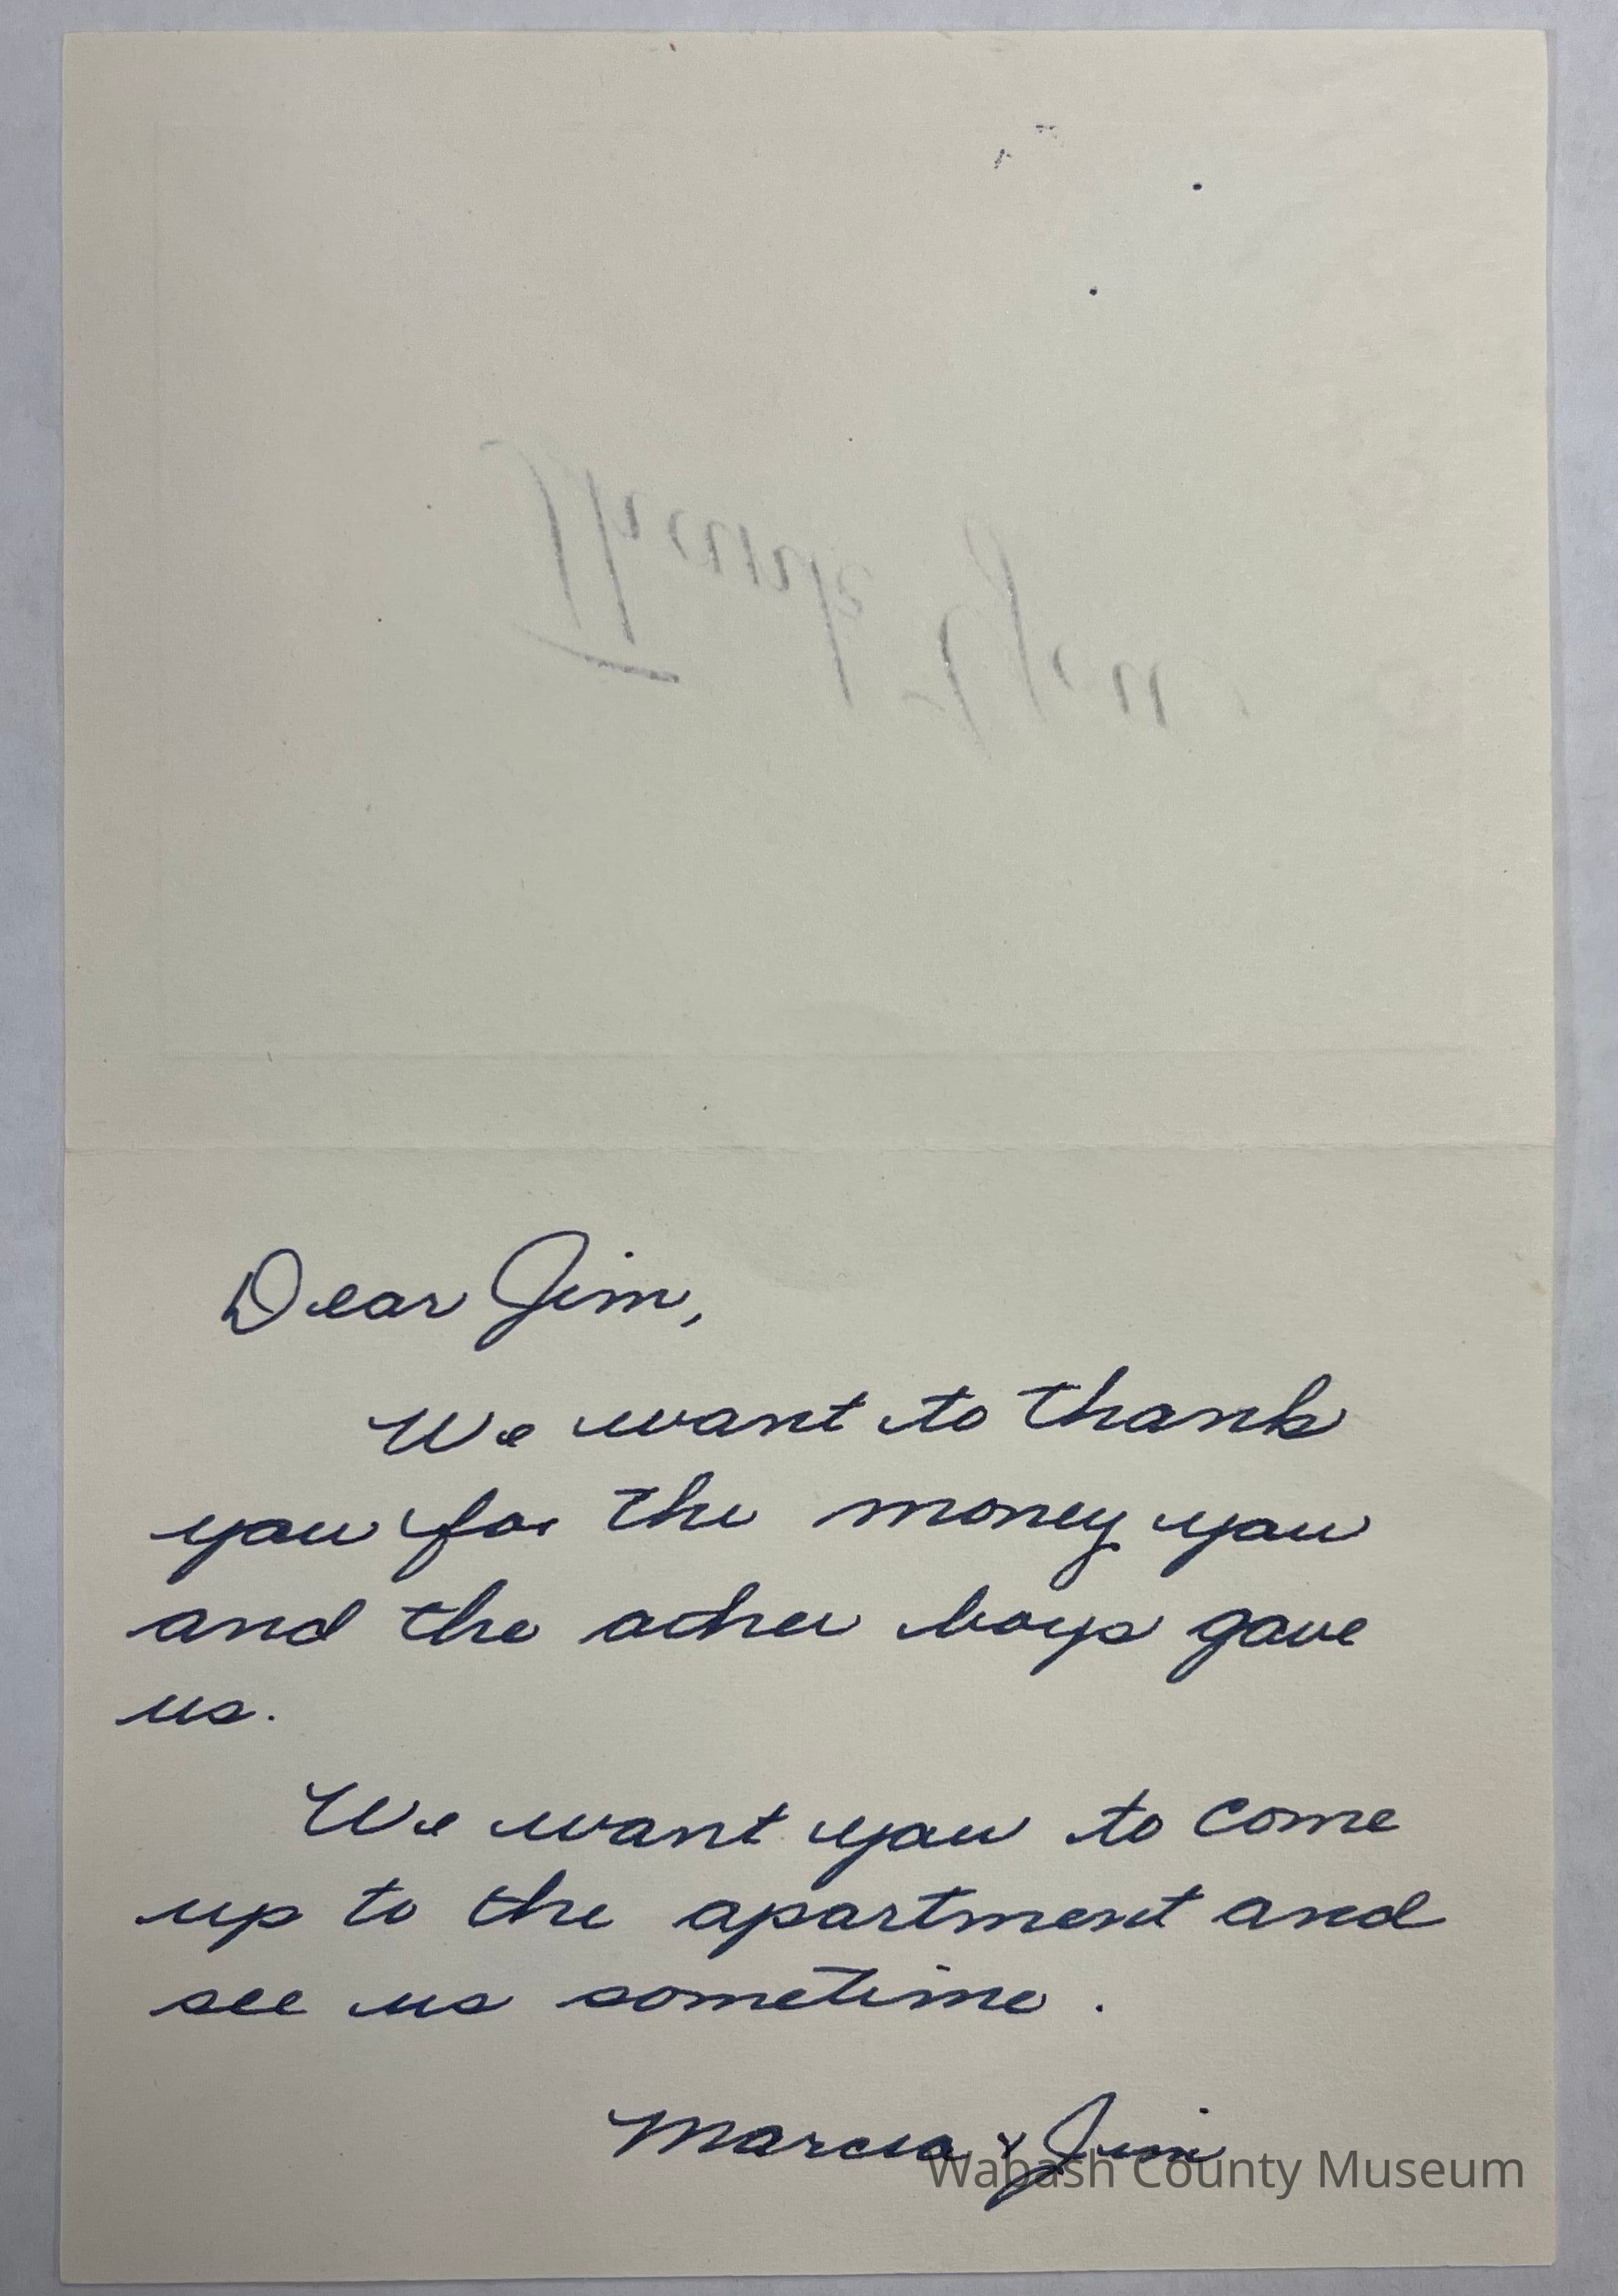 Dear Jim,
We want to thank
you for the money you
and the other boys gave
us.
We want you to come
up to the apartment and
see us sometime.
Marcia & Jim
Wabash County Museum